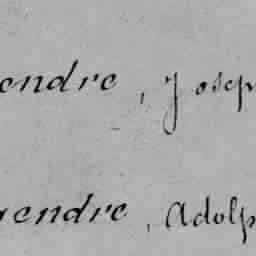 endre, Joseph
endre, Adolp